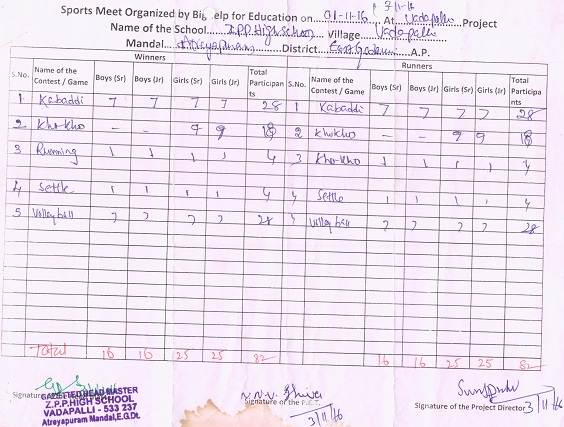 Sports Meet Organized by Big Help for Education on 01-11-16 to 3/11/16 At Vadapalli Project
Name of the School Z.P.P. High School Village Vadapalli
Mandal Atreyapuram District East Godavari A.P.
Winners Runners
S.No. Name of the Contest / Game Boys (Sr) Boys (Jr) Girls (Sr) Girls (Jr) Total Participants S.No. Name of the Contest / Game Boys (Sr) Boys (Jr) Girls (Sr) Girls (Jr) Total Participants
1 Kabaddi 7 7 7 7 28 1 Kabaddi 7 7 7 7 28
2 Khokho - - 9 9 18 2 Khokho - - 9 9 18
3 Running 1 1 1 1 4 3 Khokho 1 1 1 1 4
4 Settle 1 1 1 1 4 4 Settle 1 1 1 1 4
5 Volleyball 7 7 7 7 28 Volleyball 7 7 7 7 28
Total 16 16 25 25 82 16 16 25 25 82
Signature
GAZETTED HEAD MASTER
Z.P.P.HIGH SCHOOL
VADAPALLI - 533 237
Atreyapuram Mandal,E.G.Dt.
N.N.V. Shiva
Signature of the P.E.T.
3/11/16
Signature of the Project Director 3/11/16